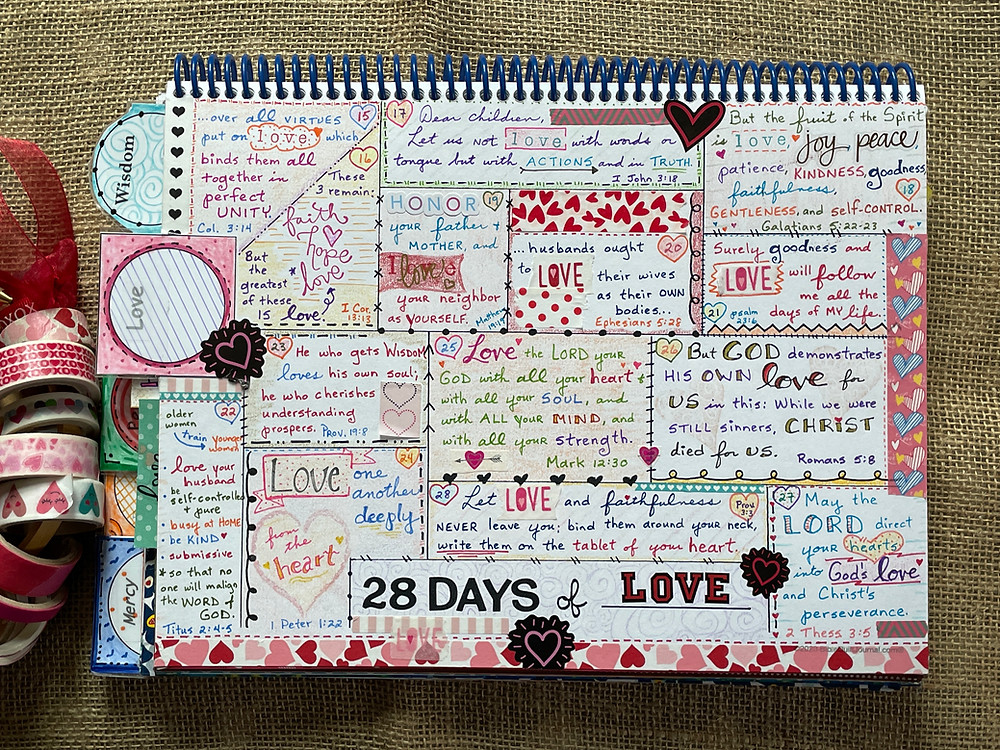 ...over all VIRTUES
15
put on love which
binds them all
together in
perfect
UNITY.
Col. 3:14
16
These
3 remain:
faith
hope
love
But
the
greatest
of these
is love.
I Cor.
13:13
17
Dear children,
Let us not love with words or
tongue but with ACTIONS and in TRUTH.
I John 3:18
But the fruit of the Spirit
is love, joy peace,
patience, KINDNESS, goodness,
faithfulness,
18
GENTLENESS, and self-CONTROL.
Galatians 5:22-23
HONOR
19
your father +
MOTHER, and
love
your neighbor
as YOURSELF.
Matthew
19:19
...husbands ought
20
to LOVE
their wives
as their OWN
bodies...
Ephesians 5:28
Surely goodness and
LOVE will follow
me all the
21
psalm
23:6
days of MY life.
Wisdom
Love
Mercy
XOXO
22
older
women
train younger
women
• love your
husband
• be
self-controlled
+ pure
• busy at HOME
• be KIND
• submissive
* so that no
one will malign
the WORD of
GOD.
Titus 2:4-5
23
He who gets WISDOM
loves his own soul;
he who cherishes
understanding
prospers. Prov. 19:8
24
Love one
another
deeply
from
the
heart
1 Peter 1:22
25
Love the LORD your
GOD with all your heart +
with all your SOUL, and
with ALL your MIND, and
with all your strength.
Mark 12:30
26
But GOD demonstrates
HIS OWN love for
US in this: While we were
STILL sinners, CHRIST
died for us.
Romans 5:8
28
Let LOVE and faithfulness
Prov
3:3
NEVER leave you; bind them around your neck,
write them on the tablet of your heart.
27
May the
LORD direct
your heart's
into God's love
and Christ's
perseverance.
2 Thess 3:5
28 DAYS of LOVE
LOVE